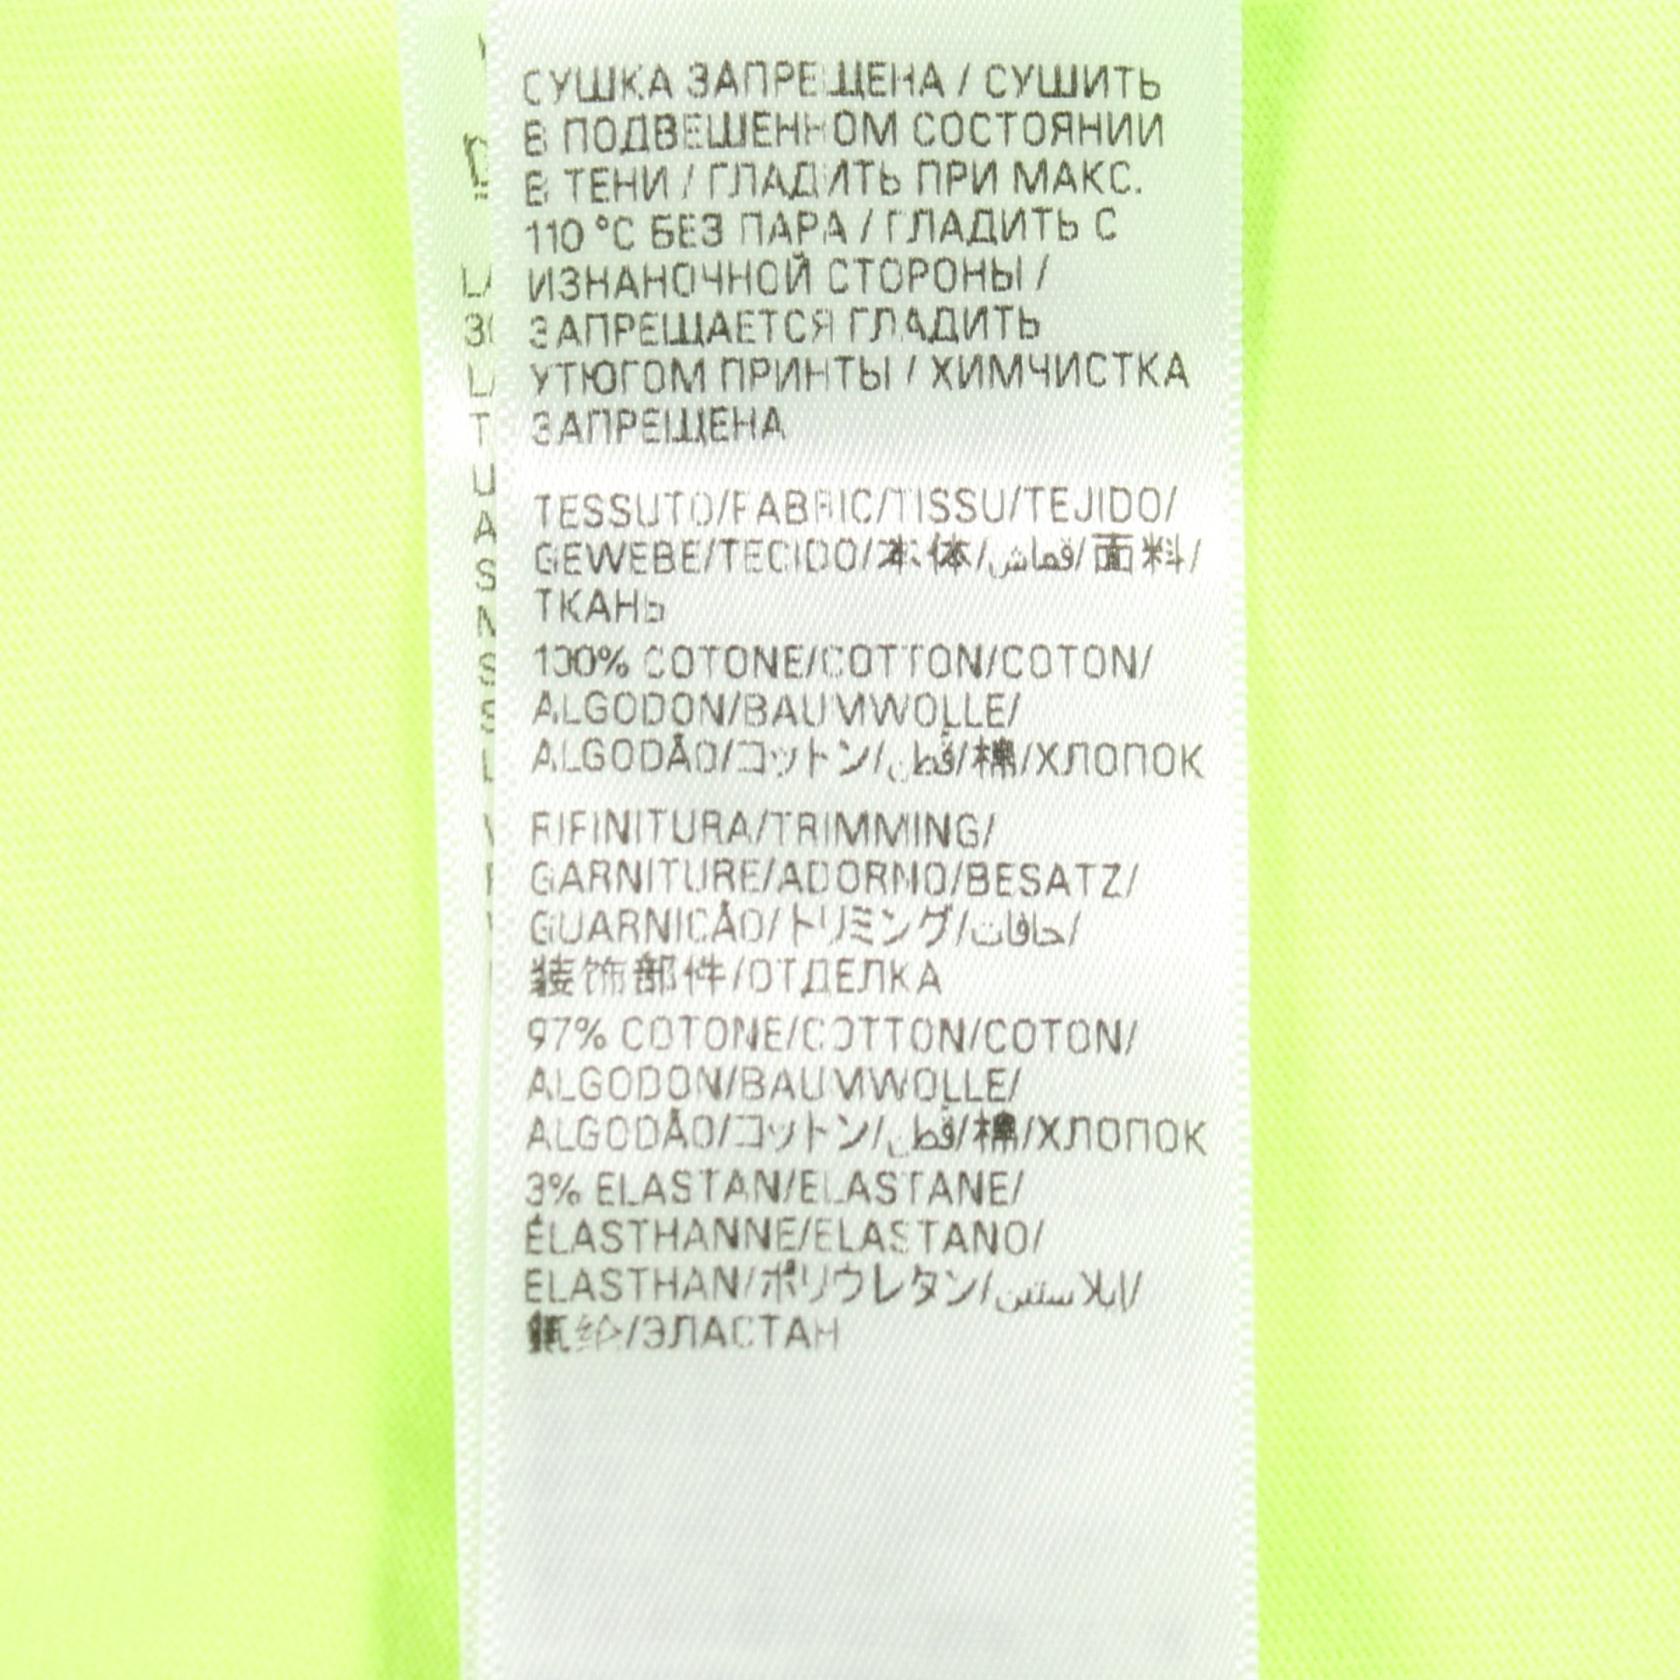 СУШКА ЗАПРЕЩЕНА / СУШИТЬ
В ПОДВЕШЕННОМ СОСТОЯНИИ
В ТЕНИ / ГЛАДИТЬ ПРИ МАКС.
110 °C БЕЗ ПАРА / ГЛАДИТЬ С
ИЗНАНОЧНОЙ СТОРОНЫ /
ЗАПРЕЩАЕТСЯ ГЛАДИТЬ
УТЮГОМ ПРИНТЫ / ХИМЧИСТКА
ЗАПРЕЩЕНА
TESSUTO/FABRIC/TISSU/TEJIDO/
GEWEBE/TECIDO/本体/قماش/面料/
ТКАНЬ
100% COTONE/COTTON/COTON/
ALGODON/BAUMWOLLE/
ALGODÃO/コットン/قطن/棉/ХЛОПОК
RIFINITURA/TRIMMING/
GARNITURE/ADORNO/BESATZ/
GUARNICÃO/トリミング/حافات/
装饰部件/ОТДЕЛКА
97% COTONE/COTTON/COTON/
ALGODON/BAUMWOLLE/
ALGODÃO/コットン/قطن/棉/ХЛОПОК
3% ELASTAN/ELASTANE/
ÉLASTHANNE/ELASTANO/
ELASTHAN/ポリウレタン/ايلاستين/
/ЭЛАСТАН